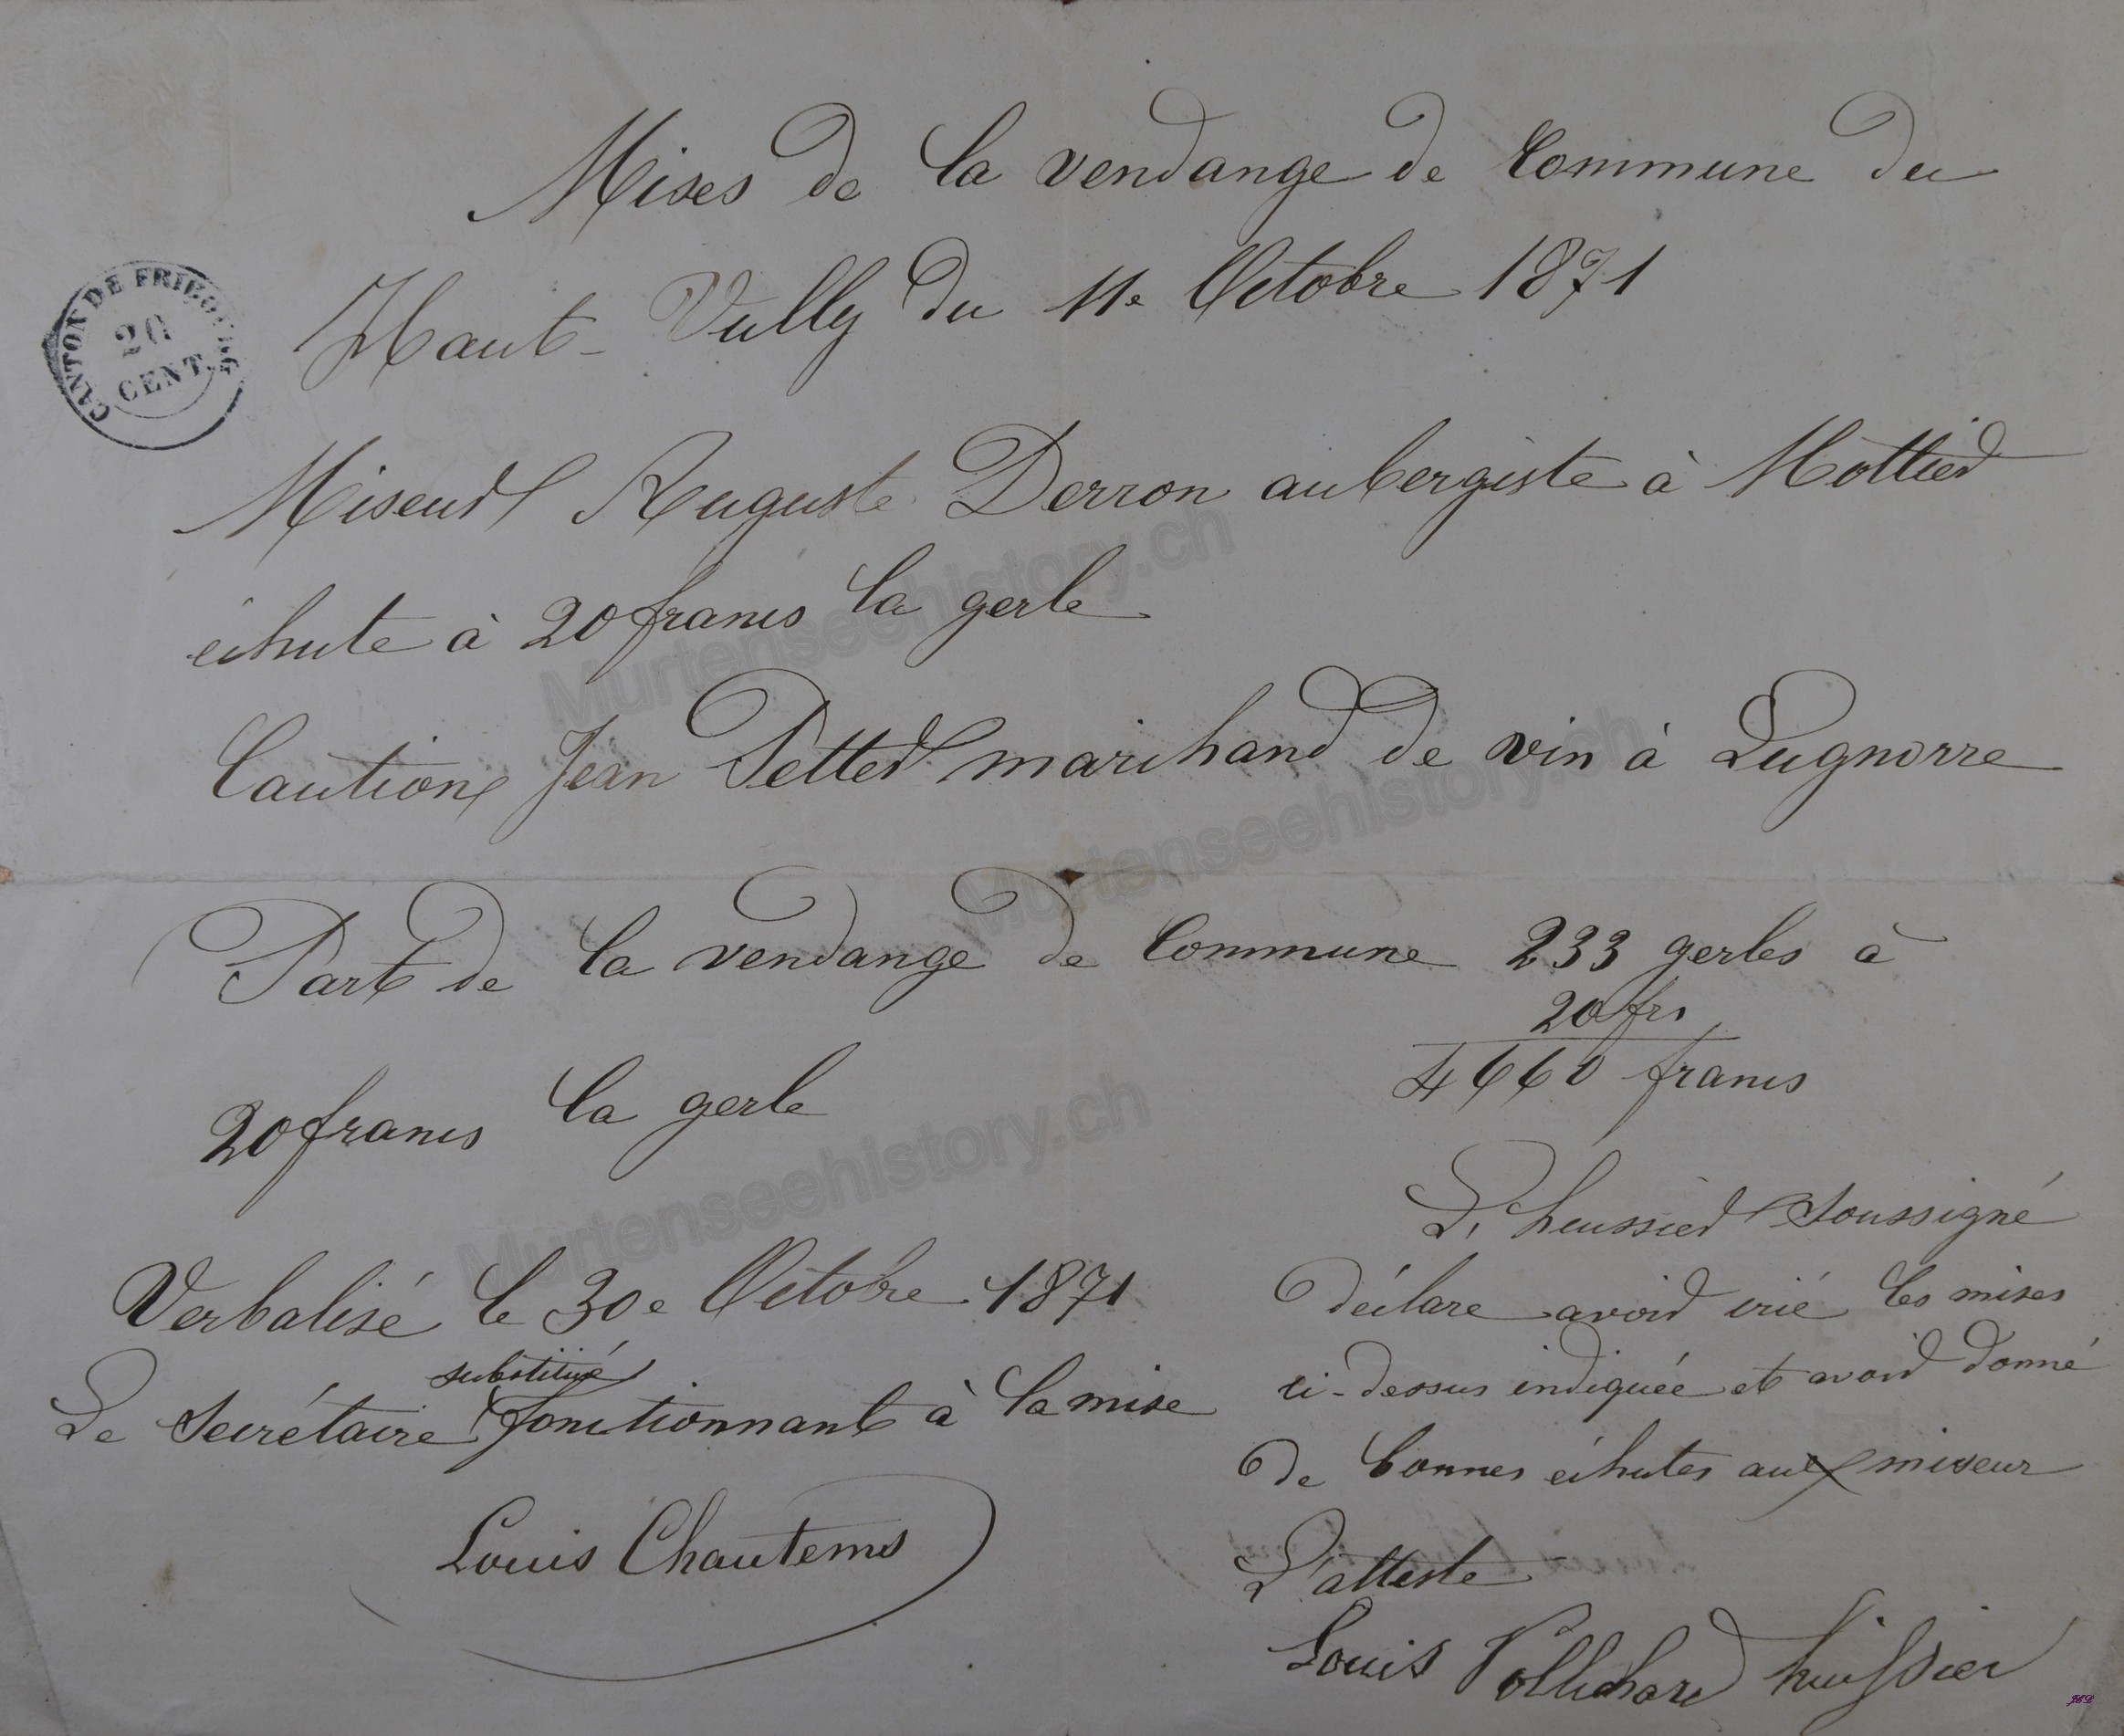 Mises de la vendange de Commune du
Haut-Vully du 11e Octobre 1871
CANTON DE FRIBOURG
20
CENT.
Miseur Auguste Derron aubergiste à Mottier
échute à 20 francs la gerle
Caution Jean Petter marchand de vin à Lugnorre
Part de la vendange de Commune 233 gerles à
20 frs
4660 francs
20 francs la gerle
L'heussier soussigné
Verbalisé le 30e Octobre 1871
déclare avoir crié les mises
substitué
Le Secrétaire fonctionnant à la mise
ci-dessus indiquée et avoir donné
de bonnes échutes aux miseur
Louis Chautems
L'atteste
Louis Vollichard huissier
Murtenseehistory.ch
Murtenseehistory.ch
Murtenseehistory.ch